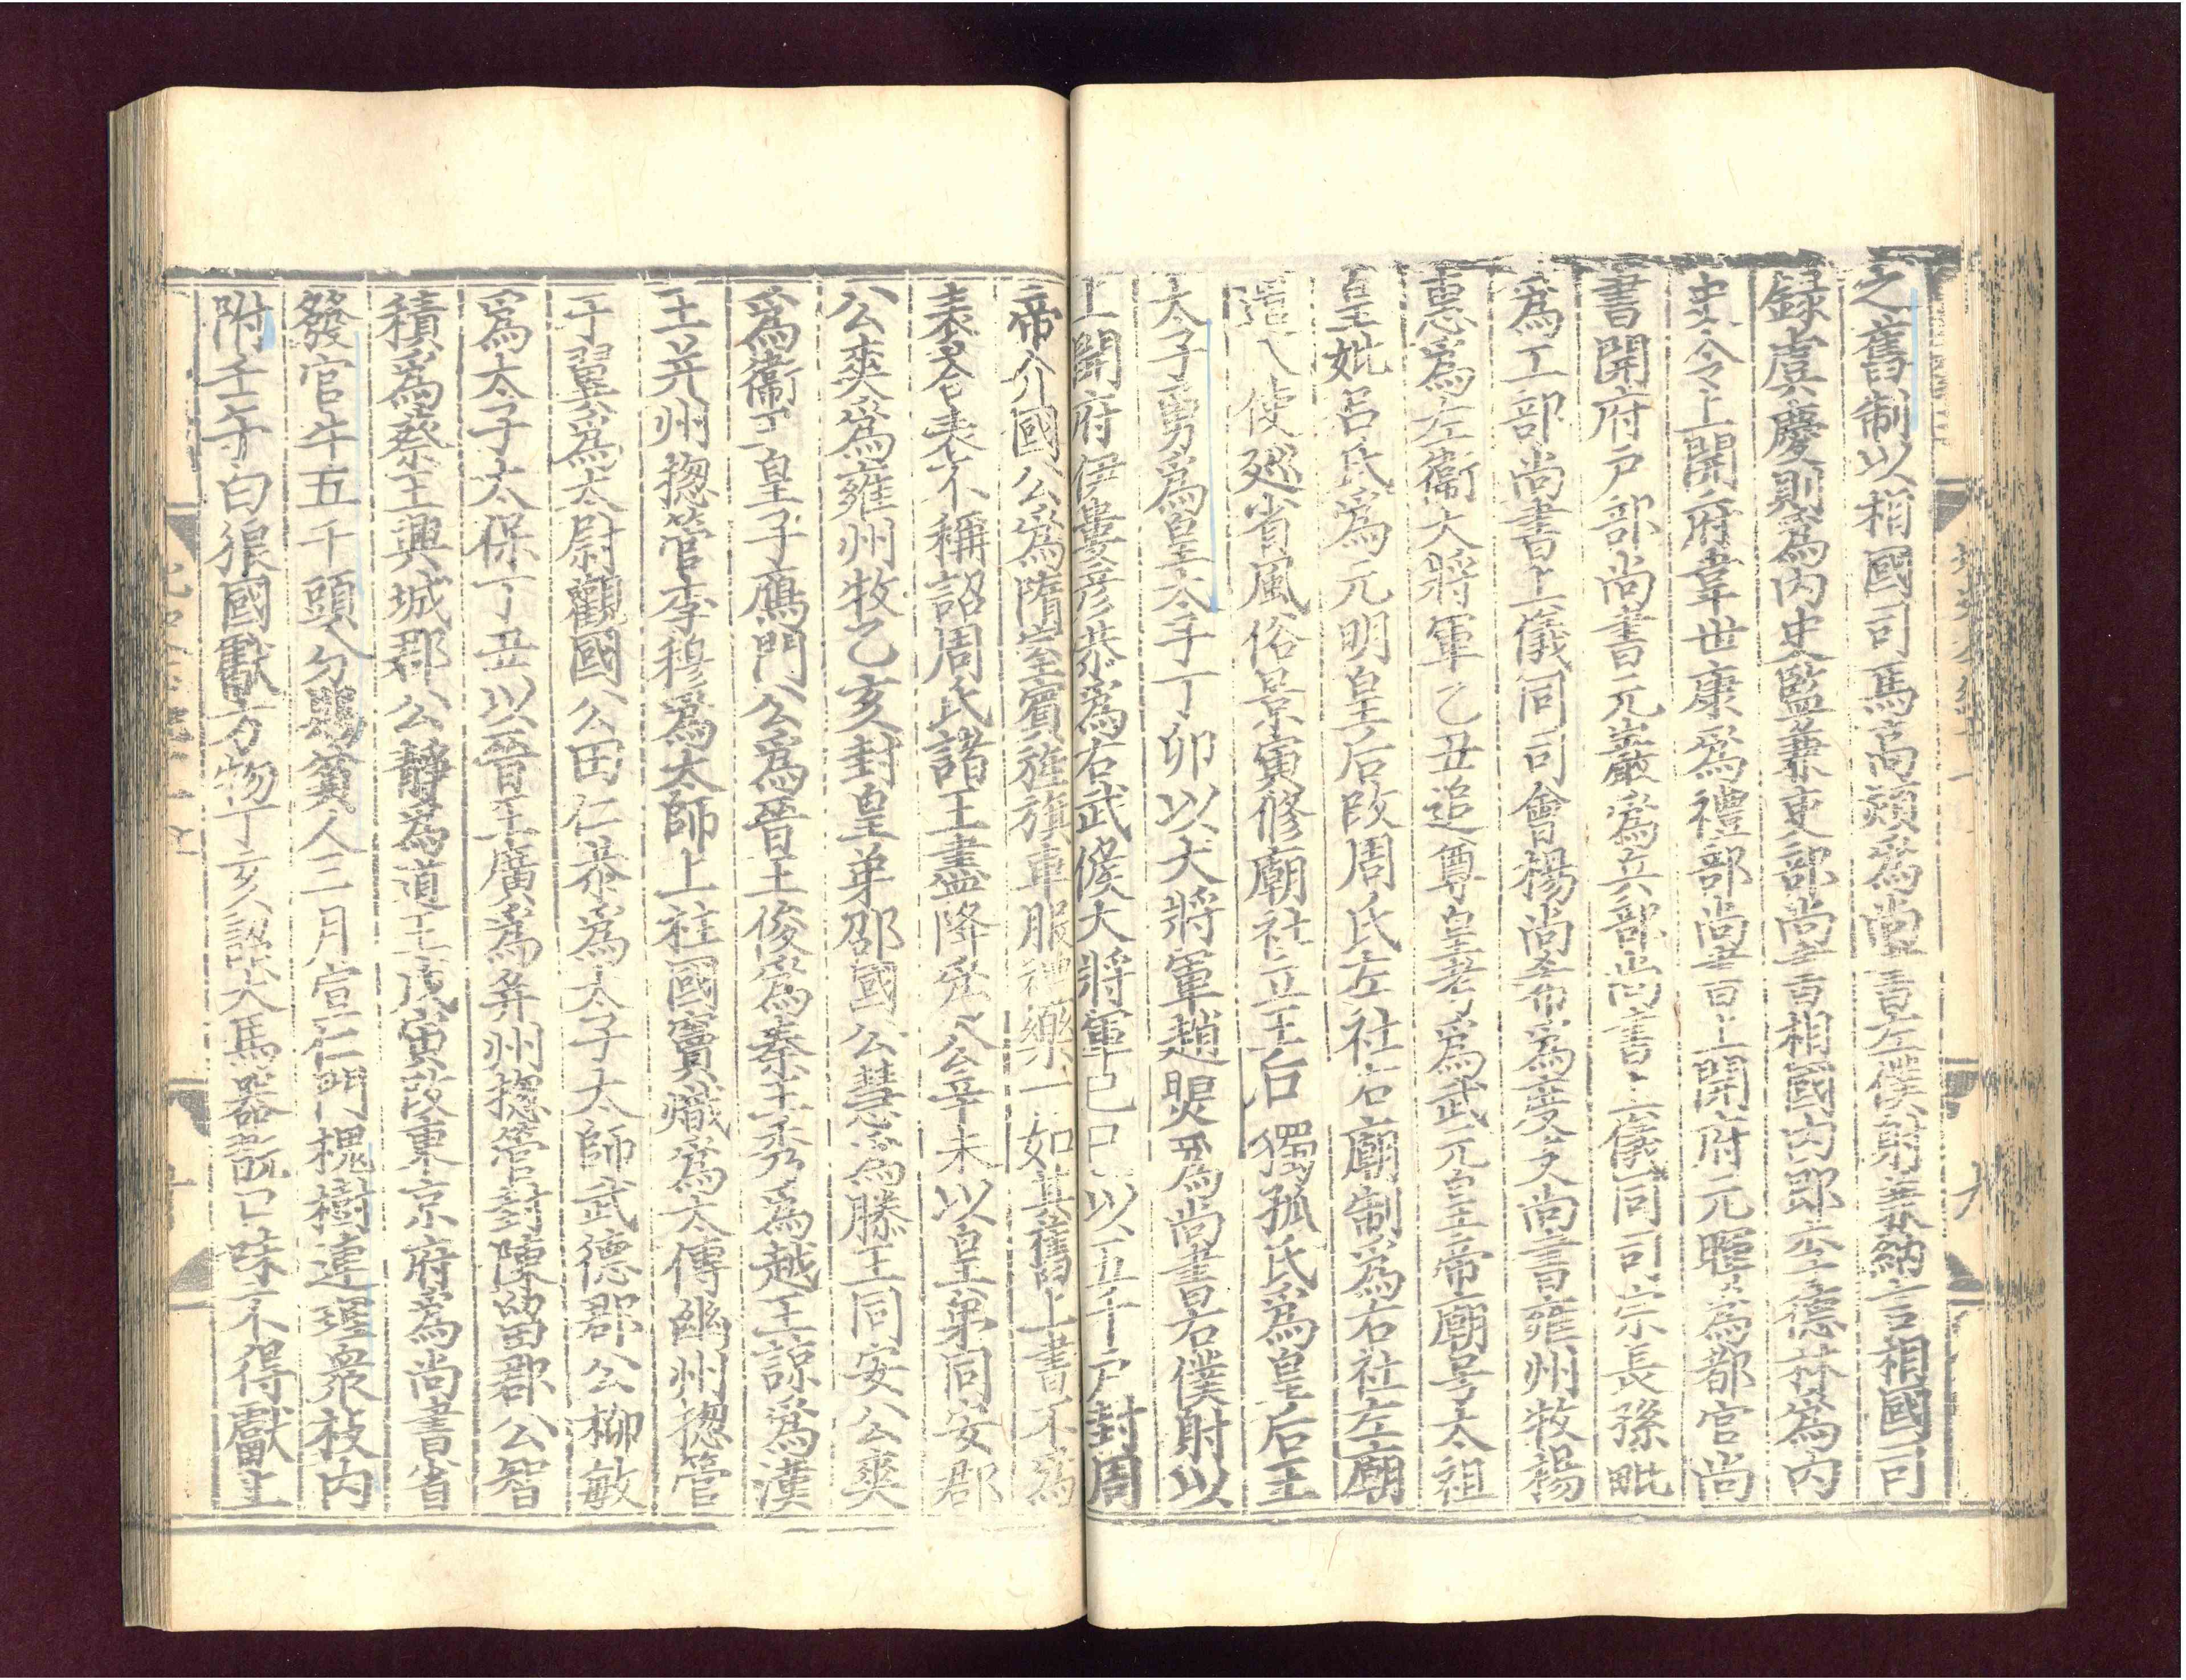 之舊制以相國司馬高熲爲尚書左僕射兼納言相國司
録虞慶則爲内史監兼吏部尚書相國内郎李德林爲内
史令上開府韋世康爲禮部尚書上開府元暉爲都官尚
書開府戸部尚書元巖爲兵部尚書上儀同司宗長孫毗
爲工部尚書上儀同司會楊尚希爲度支尚書雍州牧楊
惠爲左衞大將軍乙丑追尊皇考爲武元皇帝廟号太祖
皇妣呂氏爲元明皇后改周氏左社右廟制爲右社左廟
遣八使廵省風俗景寅修廟社立王后獨孤氏爲皇后王
太子勇爲皇太子丁卯以大將軍趙煚爲尚書右僕射以
上開府伊婁彦恭爲右武候大將軍己巳以五千戸封周
帝介國公爲隋室賓旌旗車服禮樂一如其舊上書不爲
表荅表不稱詔周氏諸王盡降爲公辛未以皇弟同安郡
公爽爲雍州牧乙亥封皇弟邵國公慧爲滕王同安公爽
爲衞王皇子鴈門公爲晉王俊爲秦王秀爲越王諒爲漢
王并州揔管李穆爲太師上柱國竇熾爲太傅幽州揔管
于翼爲太尉觀國公田仁恭爲太子太師武德郡公柳敏
爲太子太保丁丑以晉王廣爲并州揔管封陳留郡公智
積爲蔡王興城郡公靜爲道王戊寅改東京府爲尚書省
發官牛五千頭分賜貧人三月宣仁門槐樹連理衆枝内
附壬午白狼國獻方物丁亥詔犬馬器翫口味不得獻上
九